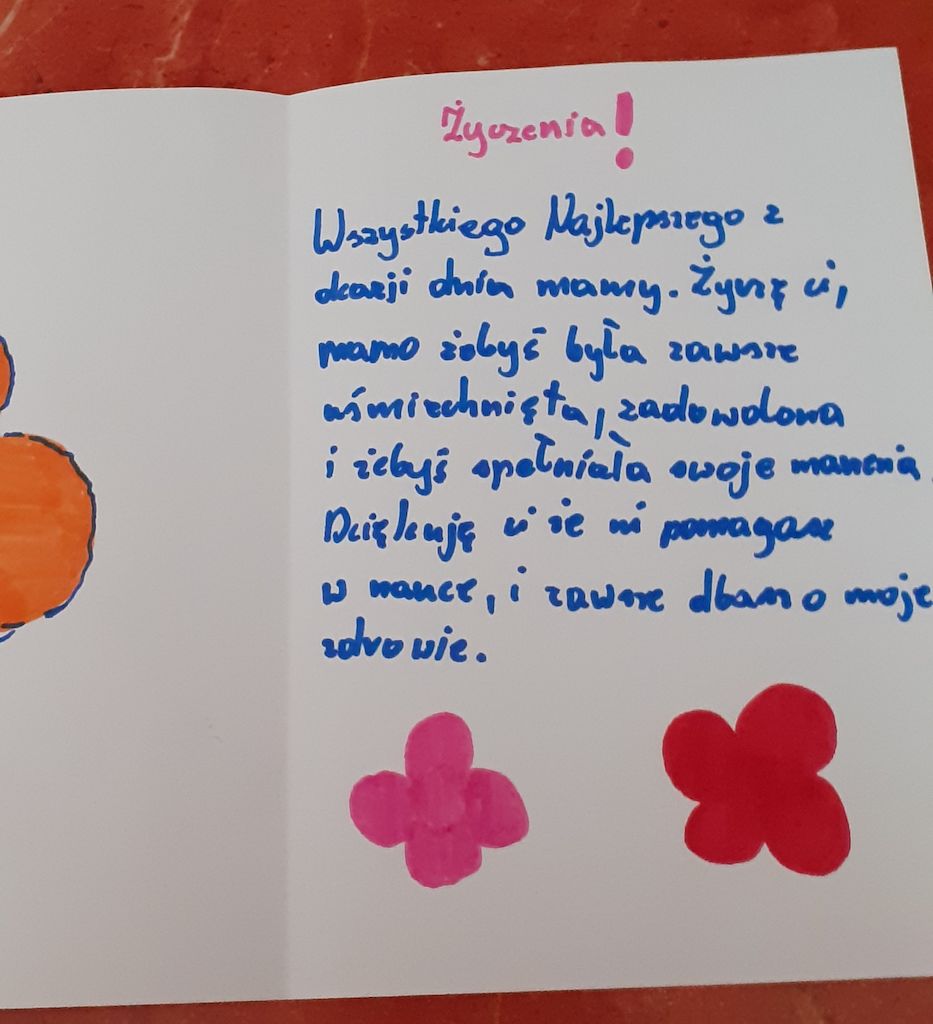 Życzenia!
Wszystkiego Najlepszego z
okazji dnia mamy. Życzę ci,
mamo żebyś była zawsze
uśmiechnięta, zadowolona
i żebyś spełniała swoje marzenia.
Dziękuję ci że mi pomagasz
w nauce, i zawsze dbasz o moje
zdrowie.